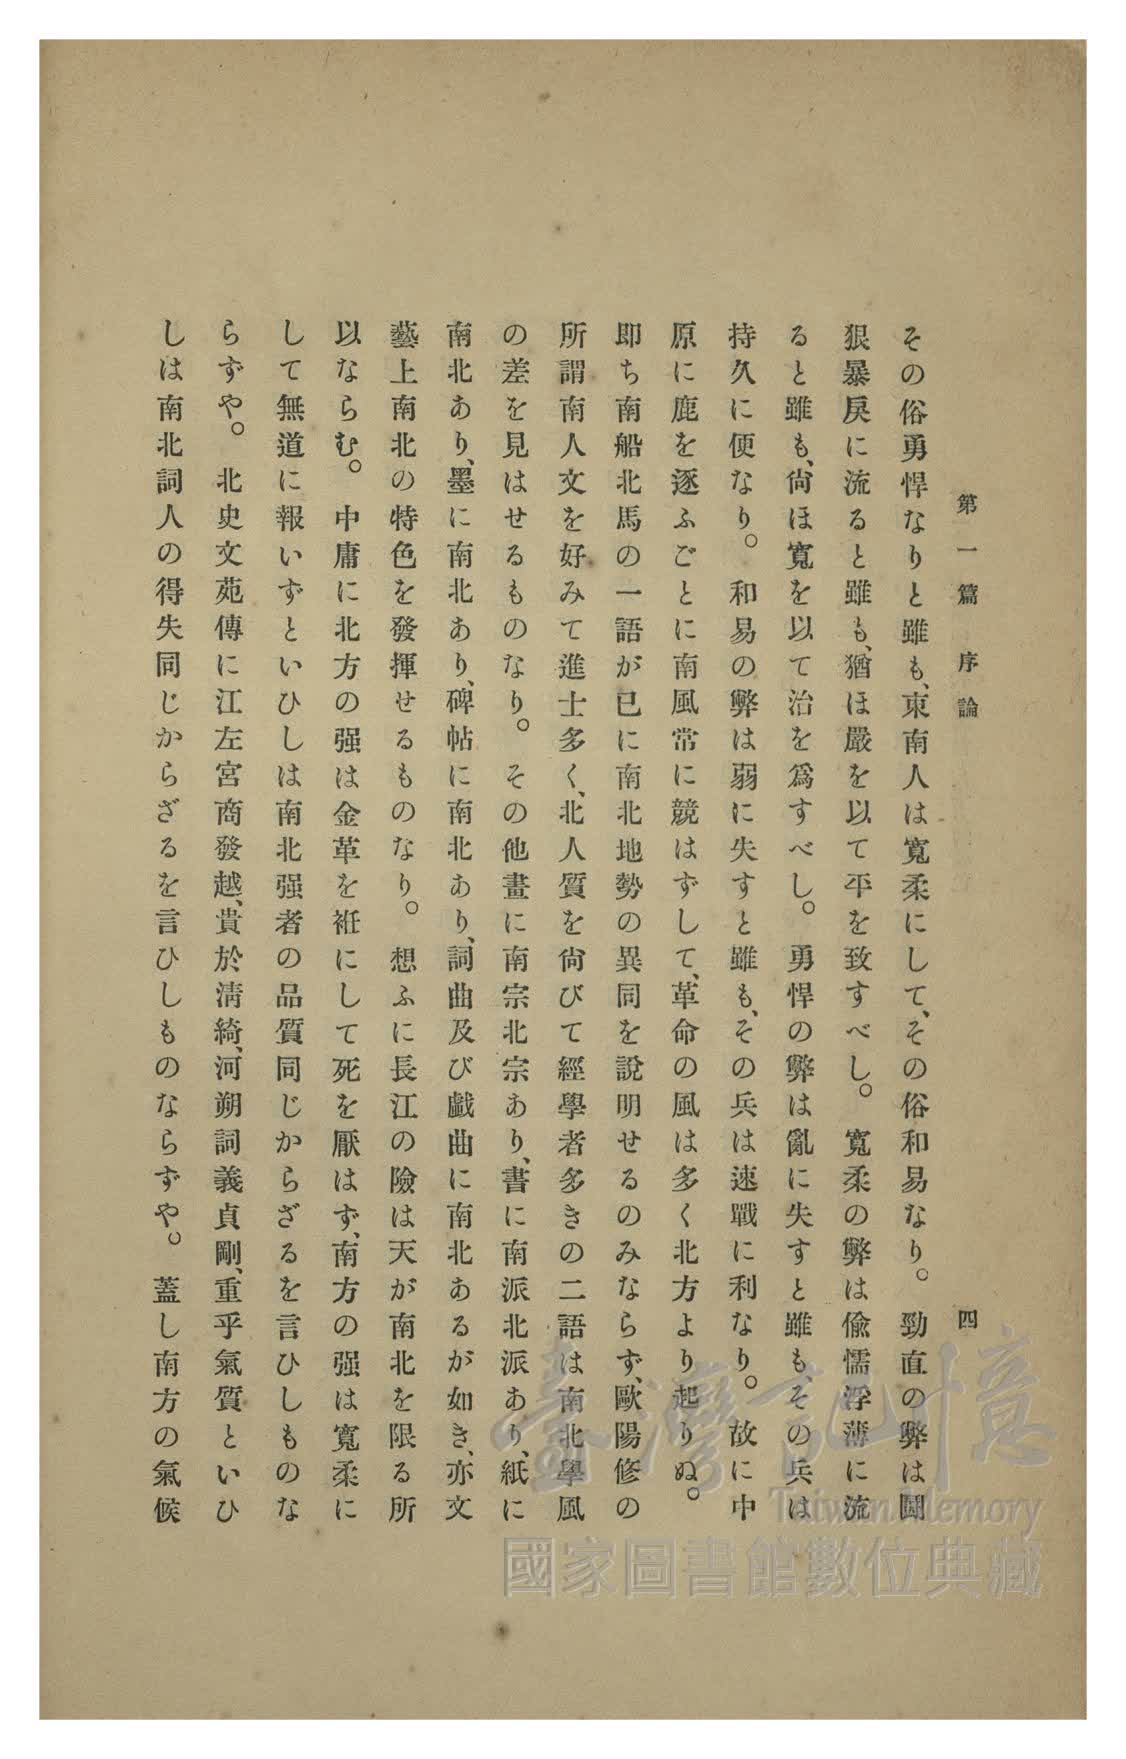 第一篇 序論 四
その俗勇悍なりと雖も、東南人は寬柔にして、その俗和易なり。勁直の弊は鬪
狠暴戾に流ると雖も、猶ほ嚴を以て平を致すべし。寬柔の弊は偸懦浮薄に流
ると雖も、尙ほ寬を以て治を爲すべし。勇悍の弊は亂に失すと雖も、その兵は
持久に便なり。和易の弊は弱に失すと雖も、その兵は速戰に利なり。故に中
原に鹿を逐ふごとに南風常に競はずして、革命の風は多く北方より起りぬ。
卽ち南船北馬の一語が已に南北地勢の異同を說明せるのみならず、歐陽修の
所謂南人文を好みて進士多く、北人質を尙びて經學者多きの二語は南北學風
の差を見はせるものなり。その他畫に南宗北宗あり、書に南派北派あり、紙に
南北あり、墨に南北あり、碑帖に南北あり、詞曲及び戲曲に南北あるが如き、亦文
藝上南北の特色を發揮せるものなり。想ふに長江の險は天が南北を限る所
以ならむ。中庸に北方の强は金革を衽にして死を厭はず、南方の强は寬柔に
して無道に報いずといひしは南北强者の品質同じからざるを言ひしものな
らずや。北史文苑傳に江左宮商發越、貴於淸綺、河朔詞義貞剛、重乎氣質といひ
しは南北詞人の得失同じからざるを言ひしものならずや。蓋し南方の氣候
臺灣記憶
Taiwan Memory
國家圖書館數位典藏